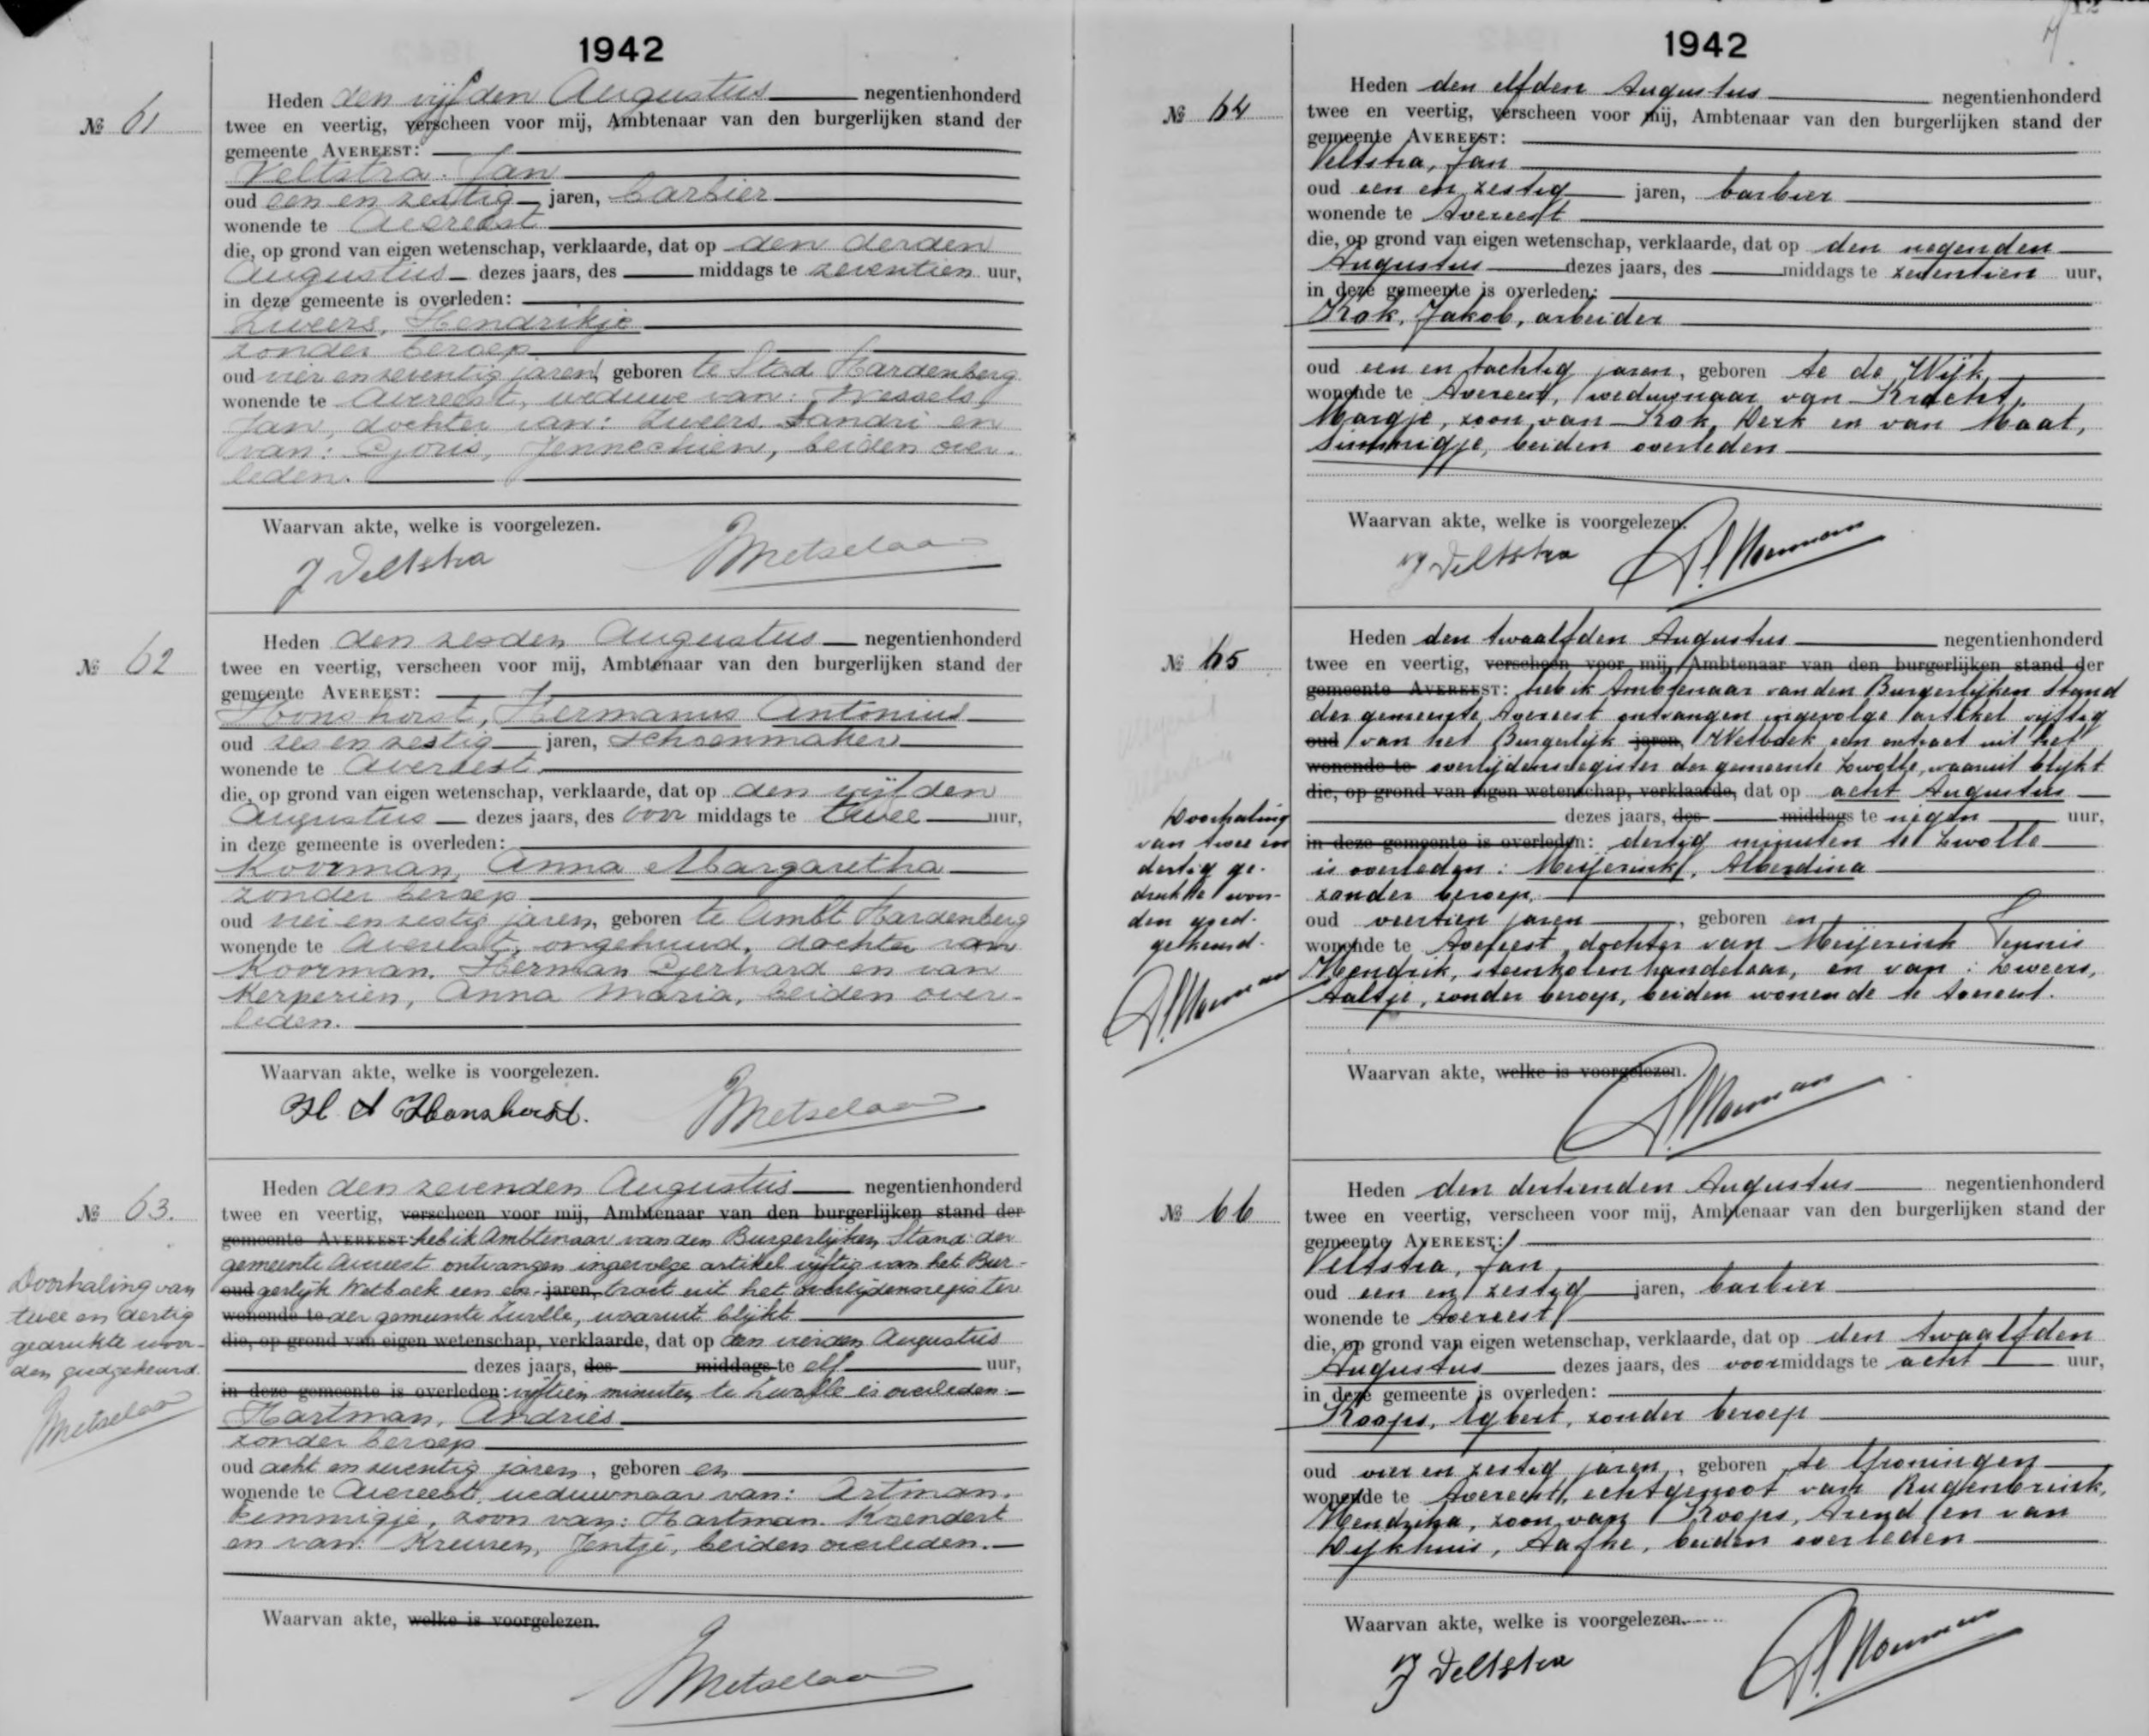 1942
№ 61
Heden den vijfden Augustus negentienhonderd
twee en veertig, verscheen voor mij, Ambtenaar van den burgerlijken stand der
gemeente AVEREEST:
Veltstra, Jan
oud een en zestig jaren, barbier
wonende te Avereest
die, op grond van eigen wetenschap, verklaarde, dat op den derden
Augustus dezes jaars, des middags te zeventien uur,
in deze gemeente is overleden:
Zweers, Hendrikje
zonder beroep
oud vier en zeventig jaren, geboren te Stad Hardenberg
wonende te Avereest, weduwe van: Wessels,
Jan, dochter van: Zweers, en
van: Goris, Jennechien, beiden over-
leden.
Waarvan akte, welke is voorgelezen.
J Veltstra Metselaar
№ 62
Heden den zesden Augustus negentienhonderd
twee en veertig, verscheen voor mij, Ambtenaar van den burgerlijken stand der
gemeente AVEREEST:
Honshorst, Hermanus Antonius
oud zes en zestig jaren, schoenmaker
wonende te Avereest
die, op grond van eigen wetenschap, verklaarde, dat op den vijfden
Augustus dezes jaars, des voor middags te twee uur,
in deze gemeente is overleden:
Koorman, Anna Margaretha
zonder beroep
oud vier en zestig jaren, geboren te Ambt Hardenberg
wonende te Avereest, ongehuwd, dochter van
Koorman, Herman Gerhard en van
Kerperien, Anna Maria, beiden over-
leden.
Waarvan akte, welke is voorgelezen.
H A Honshorst. Metselaar
№ 63.
Heden den zevenden Augustus negentienhonderd
twee en veertig, verscheen voor mij, Ambtenaar van den burgerlijken stand der
gemeente AVEREEST: heb ik Ambtenaar van den Burgerlijken Stand der
gemeente Avereest ontvangen ingevolge artikel vijftig van het Bur-
oud gerlijk Wetboek een ex- jaren, tract uit het overlijdensregister
wonende te der gemeente Zwolle, waaruit blijkt
die, op grond van eigen wetenschap, verklaarde, dat op den vierden Augustus
dezes jaars, des middags te elf uur,
in deze gemeente is overleden: vijftien minuten te Zwolle is overleden:
Hartman, Andries
zonder beroep
oud acht en zeventig jaren, geboren en
wonende te Avereest, weduwnaar van: Artman,
Femmigje, zoon van: Hartman, Koendert
en van: Kreusen, Jentje, beiden overleden.
Waarvan akte, welke is voorgelezen.
Metselaar
Doorhaling van
twee en dertig
gedrukte woor-
den goedgekeurd.
Metselaar
1942
№ 64
Heden den elfden Augustus negentienhonderd
twee en veertig, verscheen voor mij, Ambtenaar van den burgerlijken stand der
gemeente AVEREEST:
Veltstra, Jan
oud een en zestig jaren, barbier
wonende te Avereest
die, op grond van eigen wetenschap, verklaarde, dat op den negenden
Augustus dezes jaars, des middags te zeventien uur,
in deze gemeente is overleden:
Kok, Jakob, arbeider
oud een en tachtig jaren, geboren te de Wijk,
wonende te Avereest, weduwnaar van Kracht,
Margje, zoon van Kok, Derk en van Maat,
Simmigje, beiden overleden
Waarvan akte, welke is voorgelezen.
J Veltstra
№ 65
Heden den twaalfden Augustus negentienhonderd
twee en veertig, verscheen voor mij, Ambtenaar van den burgerlijken stand der
gemeente AVEREEST: heb ik Ambtenaar van den Burgerlijken Stand
der gemeente Avereest ontvangen ingevolge artikel vijftig
oud van het Burgerlijk jaren, Wetboek een extract uit het
wonende te overlijdensregister der gemeente Zwolle, waaruit blijkt
die, op grond van eigen wetenschap, verklaarde, dat op acht Augustus
dezes jaars, des middags te negen uur,
in deze gemeente is overleden: dertig minuten te Zwolle
is overleden: Meijerink, Alberdina
zonder beroep,
oud veertien jaren, geboren en
wonende te Avereest, dochter van Meijerink Teunis
Hendrik, steenkolenhandelaar, en van: Zweers,
Aaltje, zonder beroep, beiden wonende te Avereest.
Waarvan akte, welke is voorgelezen.
Doorhaling
van twee en
dertig ge-
drukte woor-
den goed-
gekeurd.
№ 66
Heden den dertienden Augustus negentienhonderd
twee en veertig, verscheen voor mij, Ambtenaar van den burgerlijken stand der
gemeente AVEREEST:
Veltstra, Jan
oud een en zestig jaren, barbier
wonende te Avereest
die, op grond van eigen wetenschap, verklaarde, dat op den twaalfden
Augustus dezes jaars, des voormiddags te acht uur,
in deze gemeente is overleden:
Koops, Egbert, zonder beroep
oud vier en zestig jaren, geboren te Groningen
wonende te Avereest, echtgenoot van Rugenbrink,
Hendrika, zoon van Koops, Arend en van
Dijkhuis, Aafke, beiden overleden
Waarvan akte, welke is voorgelezen.
J Veltstra